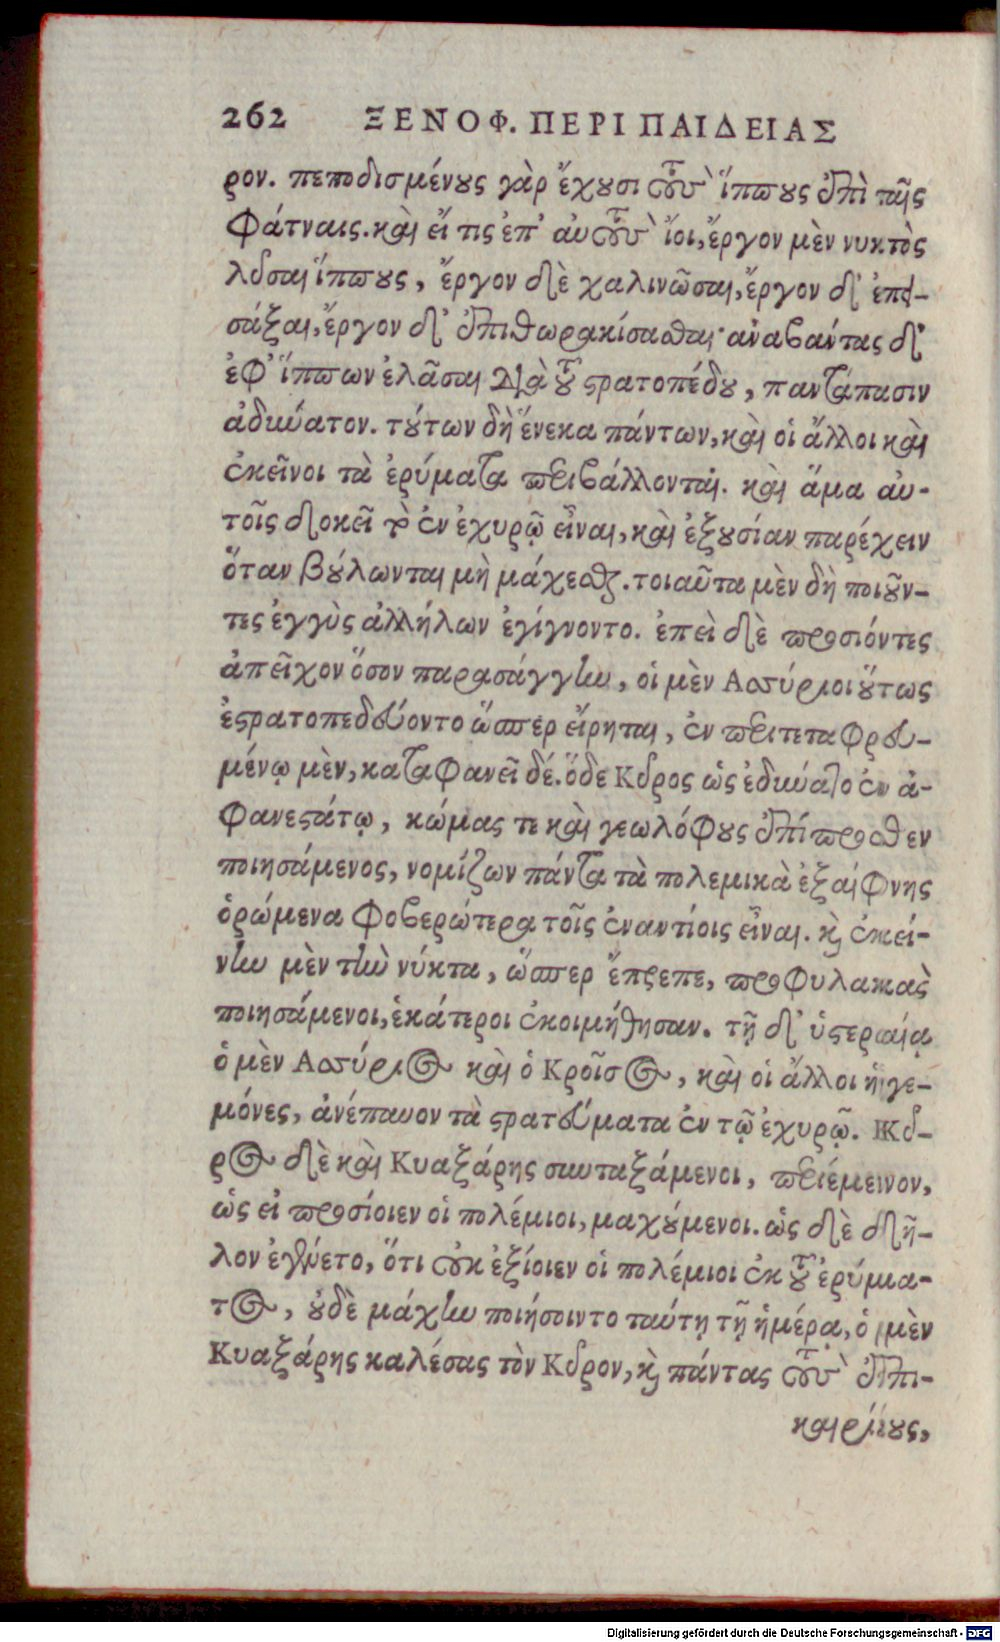 262 ΞΕΝΟΦ. ΠΕΡΙ ΠΑΙΔΕΙΑΣ
ρον. πεποδισμένους γὰρ ἔχουσι τοὺς ἵππους ἐπὶ ταῖς
φάτναις. καὶ εἴ τις ἐπ' αὐτοὺς ἴοι, ἔργον μὲν νυκτὸς
λῦσαι ἵππους, ἔργον δὲ χαλινῶσαι, ἔργον δ' ἐπι-
σάξαι, ἔργον δ' ἐπιθωρακίσασθαι· ἀναβάντας δ'
ἐφ' ἵππων ἐλᾶσαι διὰ τοῦ στρατοπέδου, παντάπασιν
ἀδύνατον. τούτων δὴ ἕνεκα πάντων, καὶ οἱ ἄλλοι καὶ
ἐκεῖνοι τὰ ἐρύματα περιβάλλονται. καὶ ἅμα αὐ-
τοῖς δοκεῖ τὸ ἐν ἐχυρῷ εἶναι, καὶ ἐξουσίαν παρέχειν
ὅταν βούλωνται μὴ μάχεσθαι. τοιαῦτα μὲν δὴ ποιοῦν-
τες ἐγγὺς ἀλλήλων ἐγίγνοντο. ἐπεὶ δὲ προσιόντες
ἀπεῖχον ὅσον παρασάγγην, οἱ μὲν Ἀσσύριοι οὕτως
ἐστρατοπεδεύοντο ὥσπερ εἴρηται, ἐν περιτεταφρευ-
μένῳ μὲν, καταφανεῖ δέ. ὁ δὲ Κῦρος ὡς ἐδύνατο ἐν ἀ-
φανεστάτῳ, κώμας τε καὶ γεωλόφους ἐπίπροσθεν
ποιησάμενος, νομίζων πάντα τὰ πολεμικὰ ἐξαίφνης
ὁρώμενα φοβερώτερα τοῖς ἐναντίοις εἶναι. καὶ ἐκεί-
νην μὲν τὴν νύκτα, ὥσπερ ἔπρεπε, προφυλακὰς
ποιησάμενοι, ἑκάτεροι ἐκοιμήθησαν. τῇ δ' ὑστεραίᾳ
ὁ μὲν Ἀσσύριος καὶ ὁ Κροῖσος, καὶ οἱ ἄλλοι ἡγε-
μόνες, ἀνέπαυον τὰ στρατεύματα ἐν τῷ ἐχυρῷ. Κῦ-
ρος δὲ καὶ Κυαξάρης συνταξάμενοι, περιέμεινον,
ὡς εἰ προσίοιεν οἱ πολέμιοι, μαχούμενοι. ὡς δὲ δῆ-
λον ἐγένετο, ὅτι οὐκ ἐξίοιεν οἱ πολέμιοι ἐκ τοῦ ἐρύμα-
τος, οὐδὲ μάχην ποιήσοιντο ταύτῃ τῇ ἡμέρᾳ, ὁ μὲν
Κυαξάρης καλέσας τὸν Κῦρον, καὶ πάντας τοὺς ἐπι-
καιρίους,
Digitalisierung gefördert durch die Deutsche Forschungsgemeinschaft - DFG